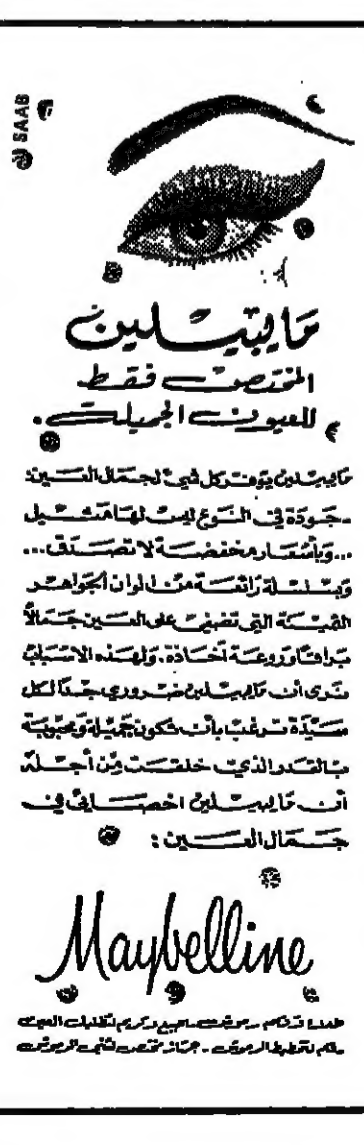 SAAB
مايبيلين
المختص فقط
للعيون الجميلة.
مايبيلين يوفر كل شيء لجمال العين:
- جودة في النوع ليس لها مثيل
... وبأسعار مخفضة لا تصدق ...
وبسلسلة رائعة من الوان الجواهر
الثمينة التي تضفي على العين جمالاً
براقاً وروعة أخاذة. ولهذه الاسباب
نرى أن مايبيلين ضروري جداً لكل
سيدة ترغب بأن تكون جميلة ومحبوبة
بالقدر الذي خلقت من أجله
أن مايبيلين اخصائي في
جمال العين:
Maybelline